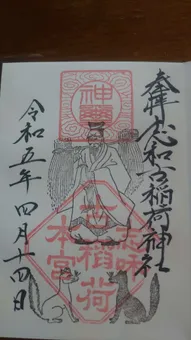 奉拝 志和古稲荷神社
志和
古稲荷
本宮
令和五年 四月十四日